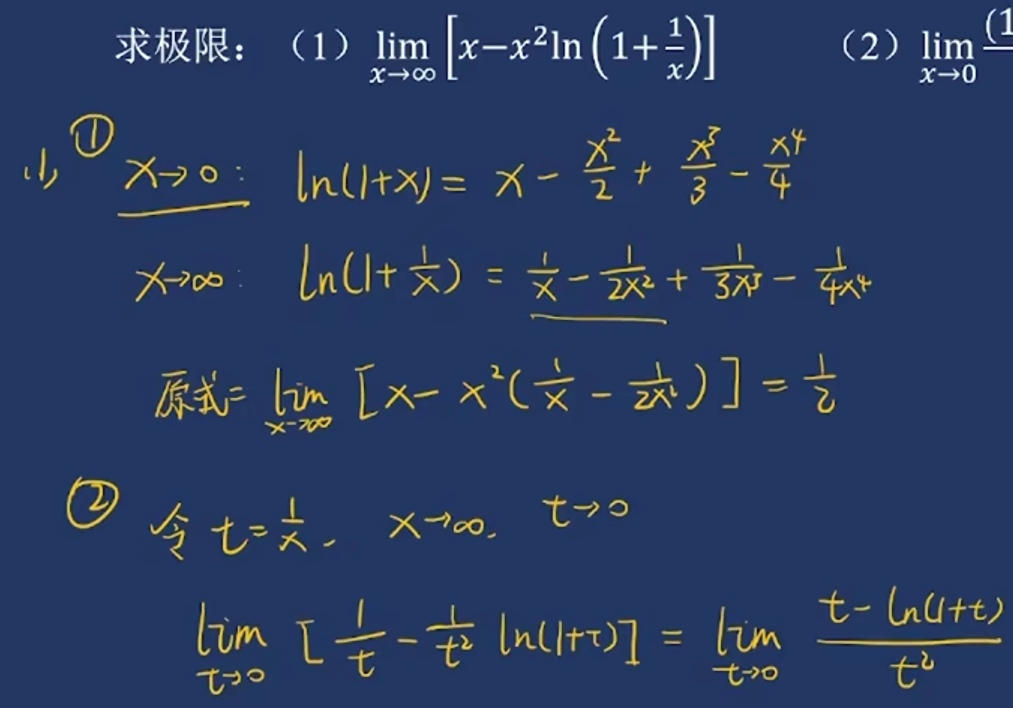 求极限：（1）lim x→∞ [x−x²ln(1+1/x)] （2）lim x→0 (1
(1) ① x→0: ln(1+x) = x − x²/2 + x³/3 − x⁴/4
x→∞: ln(1+1/x) = 1/x − 1/2x² + 1/3x³ − 1/4x⁴
原式= lim x→∞ [x − x²(1/x − 1/2x²)] = 1/2
② 令 t=1/x. x→∞. t→0
lim t→0 [1/t − 1/t² ln(1+t)] = lim t→0 t−ln(1+t)/t²